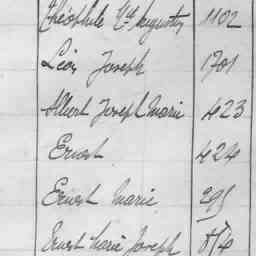 Théophile Augustin 1102
Léon Joseph 1701
Albert Joseph Marie 423
Ernest 424
Ernest Marie 295
Ernest Marie Joseph 814